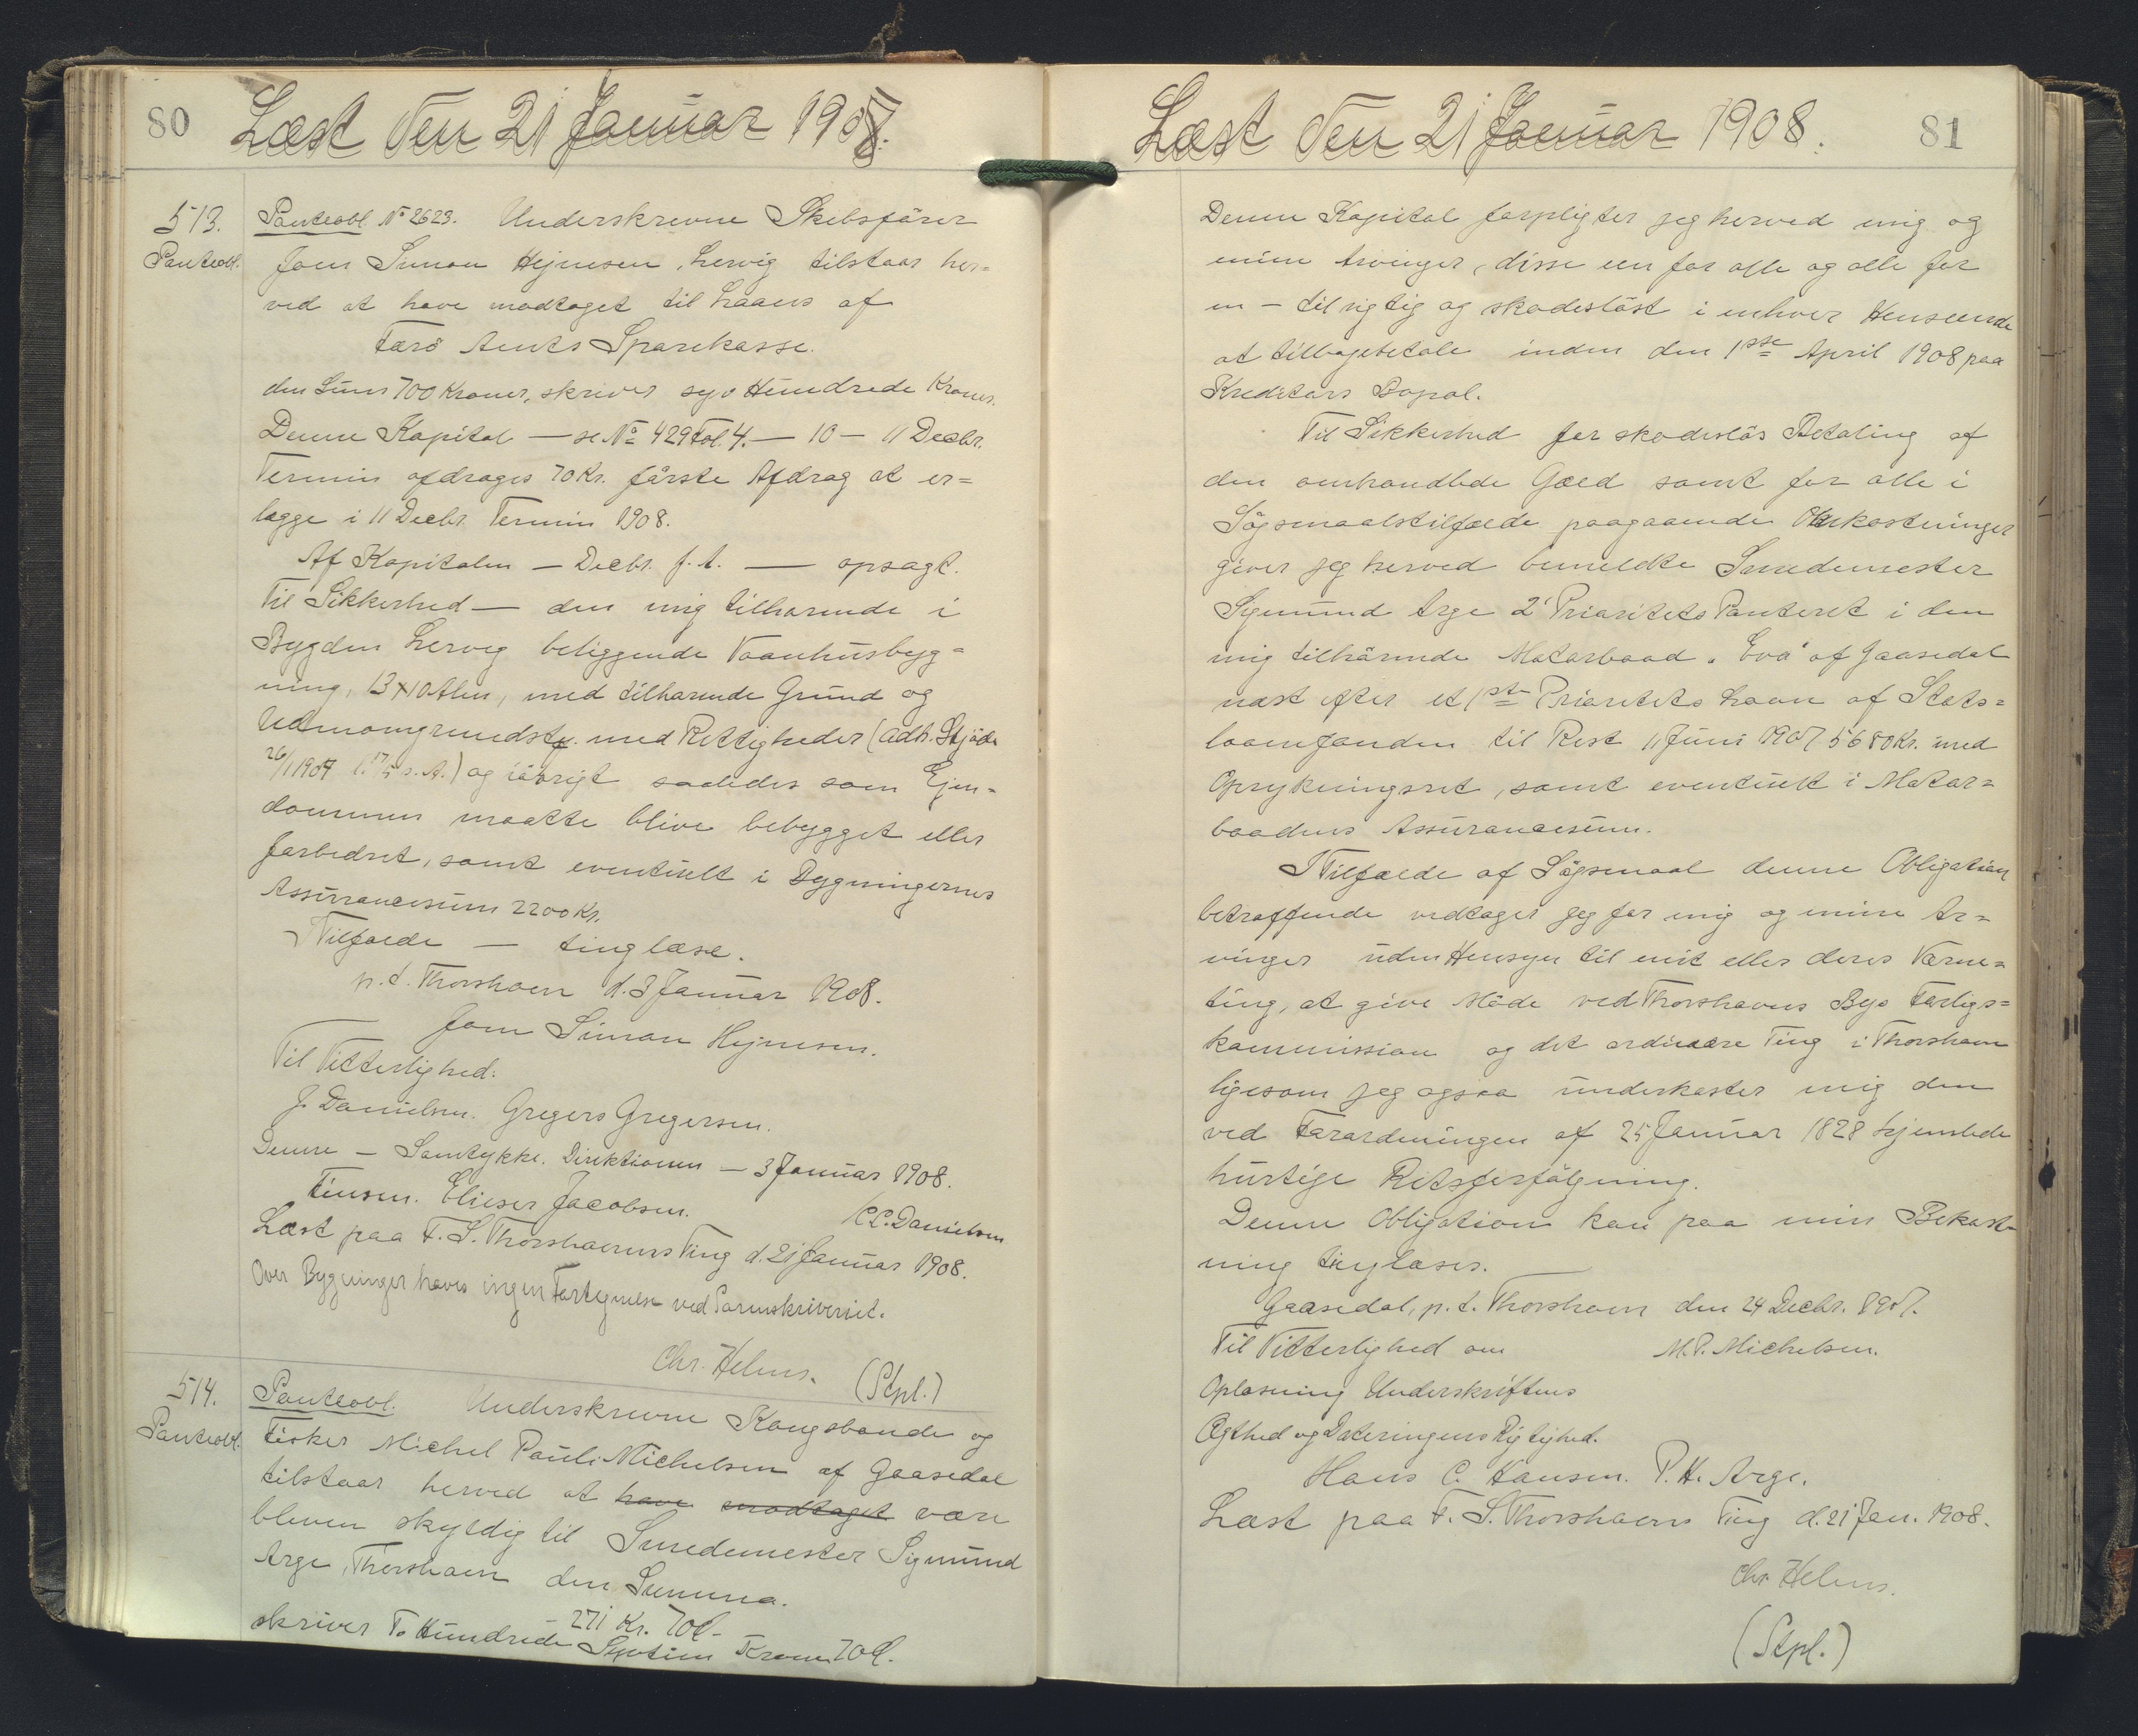 80
Læst den 21 Januar 1908.
513.
Panteobl.
Panteobl. No 2623. Underskrevne Skibsförer
Joen Simon Hejnesen, Lervig tilstaar her=
ved at have modtaget til Laans af
Færö Amts Sparekasse.
den Sum 700 Kroner, skriver syv Hundrede Kroner.
Denne Kapital — se No 429 Fol. 4. — 10 — 11 Decbr.
Termin afdrages 70 Kr. förste Afdrag at er=
lægge i 11 Decbr. Termin 1908.
Af Kapitalen — Decbr. f. A. — opsagt.
Til Sikkerhed — den mig tilhørende i
Bygden Lervig beliggende Vaanhusbyg=
ning, 13 x 10 Alen, med tilhørende Grund og
Udenomgrundst. med Rettigheder (adk. Skjöde
26/1 1907 l. 17/5 s. A.) og iövrigt saaledes som Ejen=
dommen maatte blive bebygget eller
forbedret, samt eventuelt i Bygningernes
Assurancesum 2200 Kr.
I Tilfælde — tinglæse.
p. t. Thorshavn d. 3 Januar 1908.
Joen Simon Hejnesen.
Til Vitterlighed:
J. Danielsen. Gregers Gregersen.
Denne — Samtykke. Direktionen — 3 Januar 1908.
Finsen. Elieser Jacobsen. C. C. Danielsen
Læst paa F. S. Thorshavns Ting d. 21 Januar 1908.
Over Bygninger haves ingen Fortegnelse ved Sorenskriveriet.
Chr. Helms. (Stpl.)
514.
Panteobl.
Panteobl. Underskrevne Kongsbonde og
Fisker Michel Pauli Michelsen af Gaasedal
tilstaar herved at have modtaget være
bleven skyldig til Smedemester Sigmund
Arge, Thorshavn den Summa.
271 Kr. 70 Ø.
skriver To Hundrede Syvti en Kroner 70 Ø.
Læst den 21 Januar 1908.
81
Denne Kapital forpligter jeg herved mig og
mine Arvinger, disse een for alle og alle for
en — til rigtig og skadeslöst i enhver Henseende
at tilbagebetale inden den 1ste April 1908 paa
Kreditors Bopæl.
Til Sikkerhed for skadeslös Betaling af
den omhandlede Gæld samt for alle i
Sögsmaalstilfælde paagaaende Omkostninger
giver jeg herved bemeldte Smedemester
Sigmund Arge 2' Prioritets Panteret i den
mig tilhörende Motorbaad "Eva" af Gaasedal
næst efter et 1ste Prioritets Laan af Stats=
laanefonden til Rest 11 Juni 1907 5680 Kr. med
Oprykningsret, samt eventuelt i Motor=
baadens Assurancesum.
I Tilfælde af Sögsmaal denne Obligation
betræffende vedtager jeg for mig og mine Ar=
vinger uden Hensyn til mit eller deres Værne=
ting, at give Möde ved Thorshavns Bys Forligs=
kommission og det ordinære Ting i Thorshavn
ligesom jeg ogsaa underkaster mig den
ved Forordningen af 25 Januar 1828 hjemlede
hurtige Retsforfölgning.
Denne Obligation kan paa min Bekost
ning tinglæses.
Gaasedal, p. t. Thorshavn den 24 Decbr. 1907.
Til Vitterlighed om M. P. Michelsen.
Oplæsning Underskriftens
Ægthed og Dateringens Rigtighed.
Hans C. Hansen. P. H. Arge.
Læst paa F. S. Thorshavns Ting d. 21 Jan. 1908.
Chr. Helms.
(Stpl.)